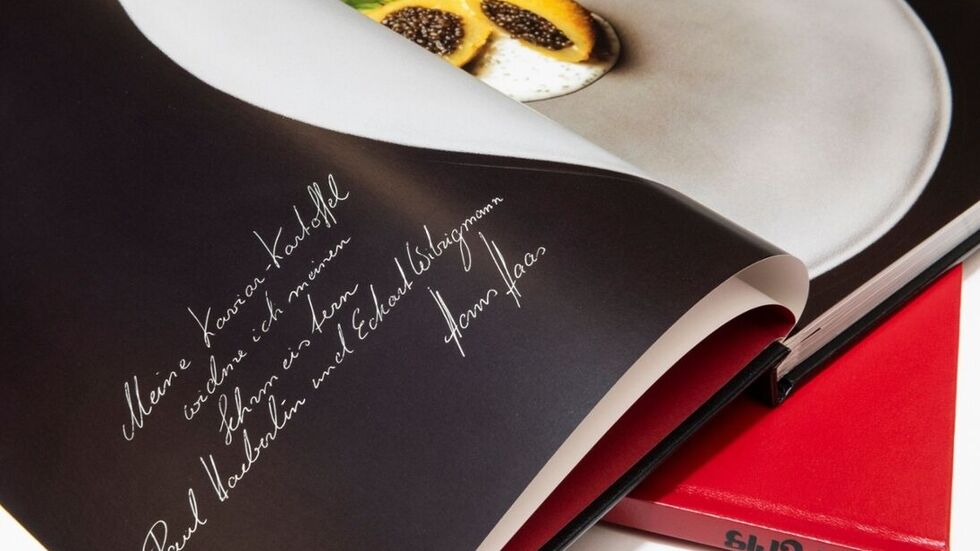 Meine Kaviar-Kartoffel
widme ich meinen
Lehrmeistern
Paul Haeberlin und Eckart Witzigmann
Hans Haas